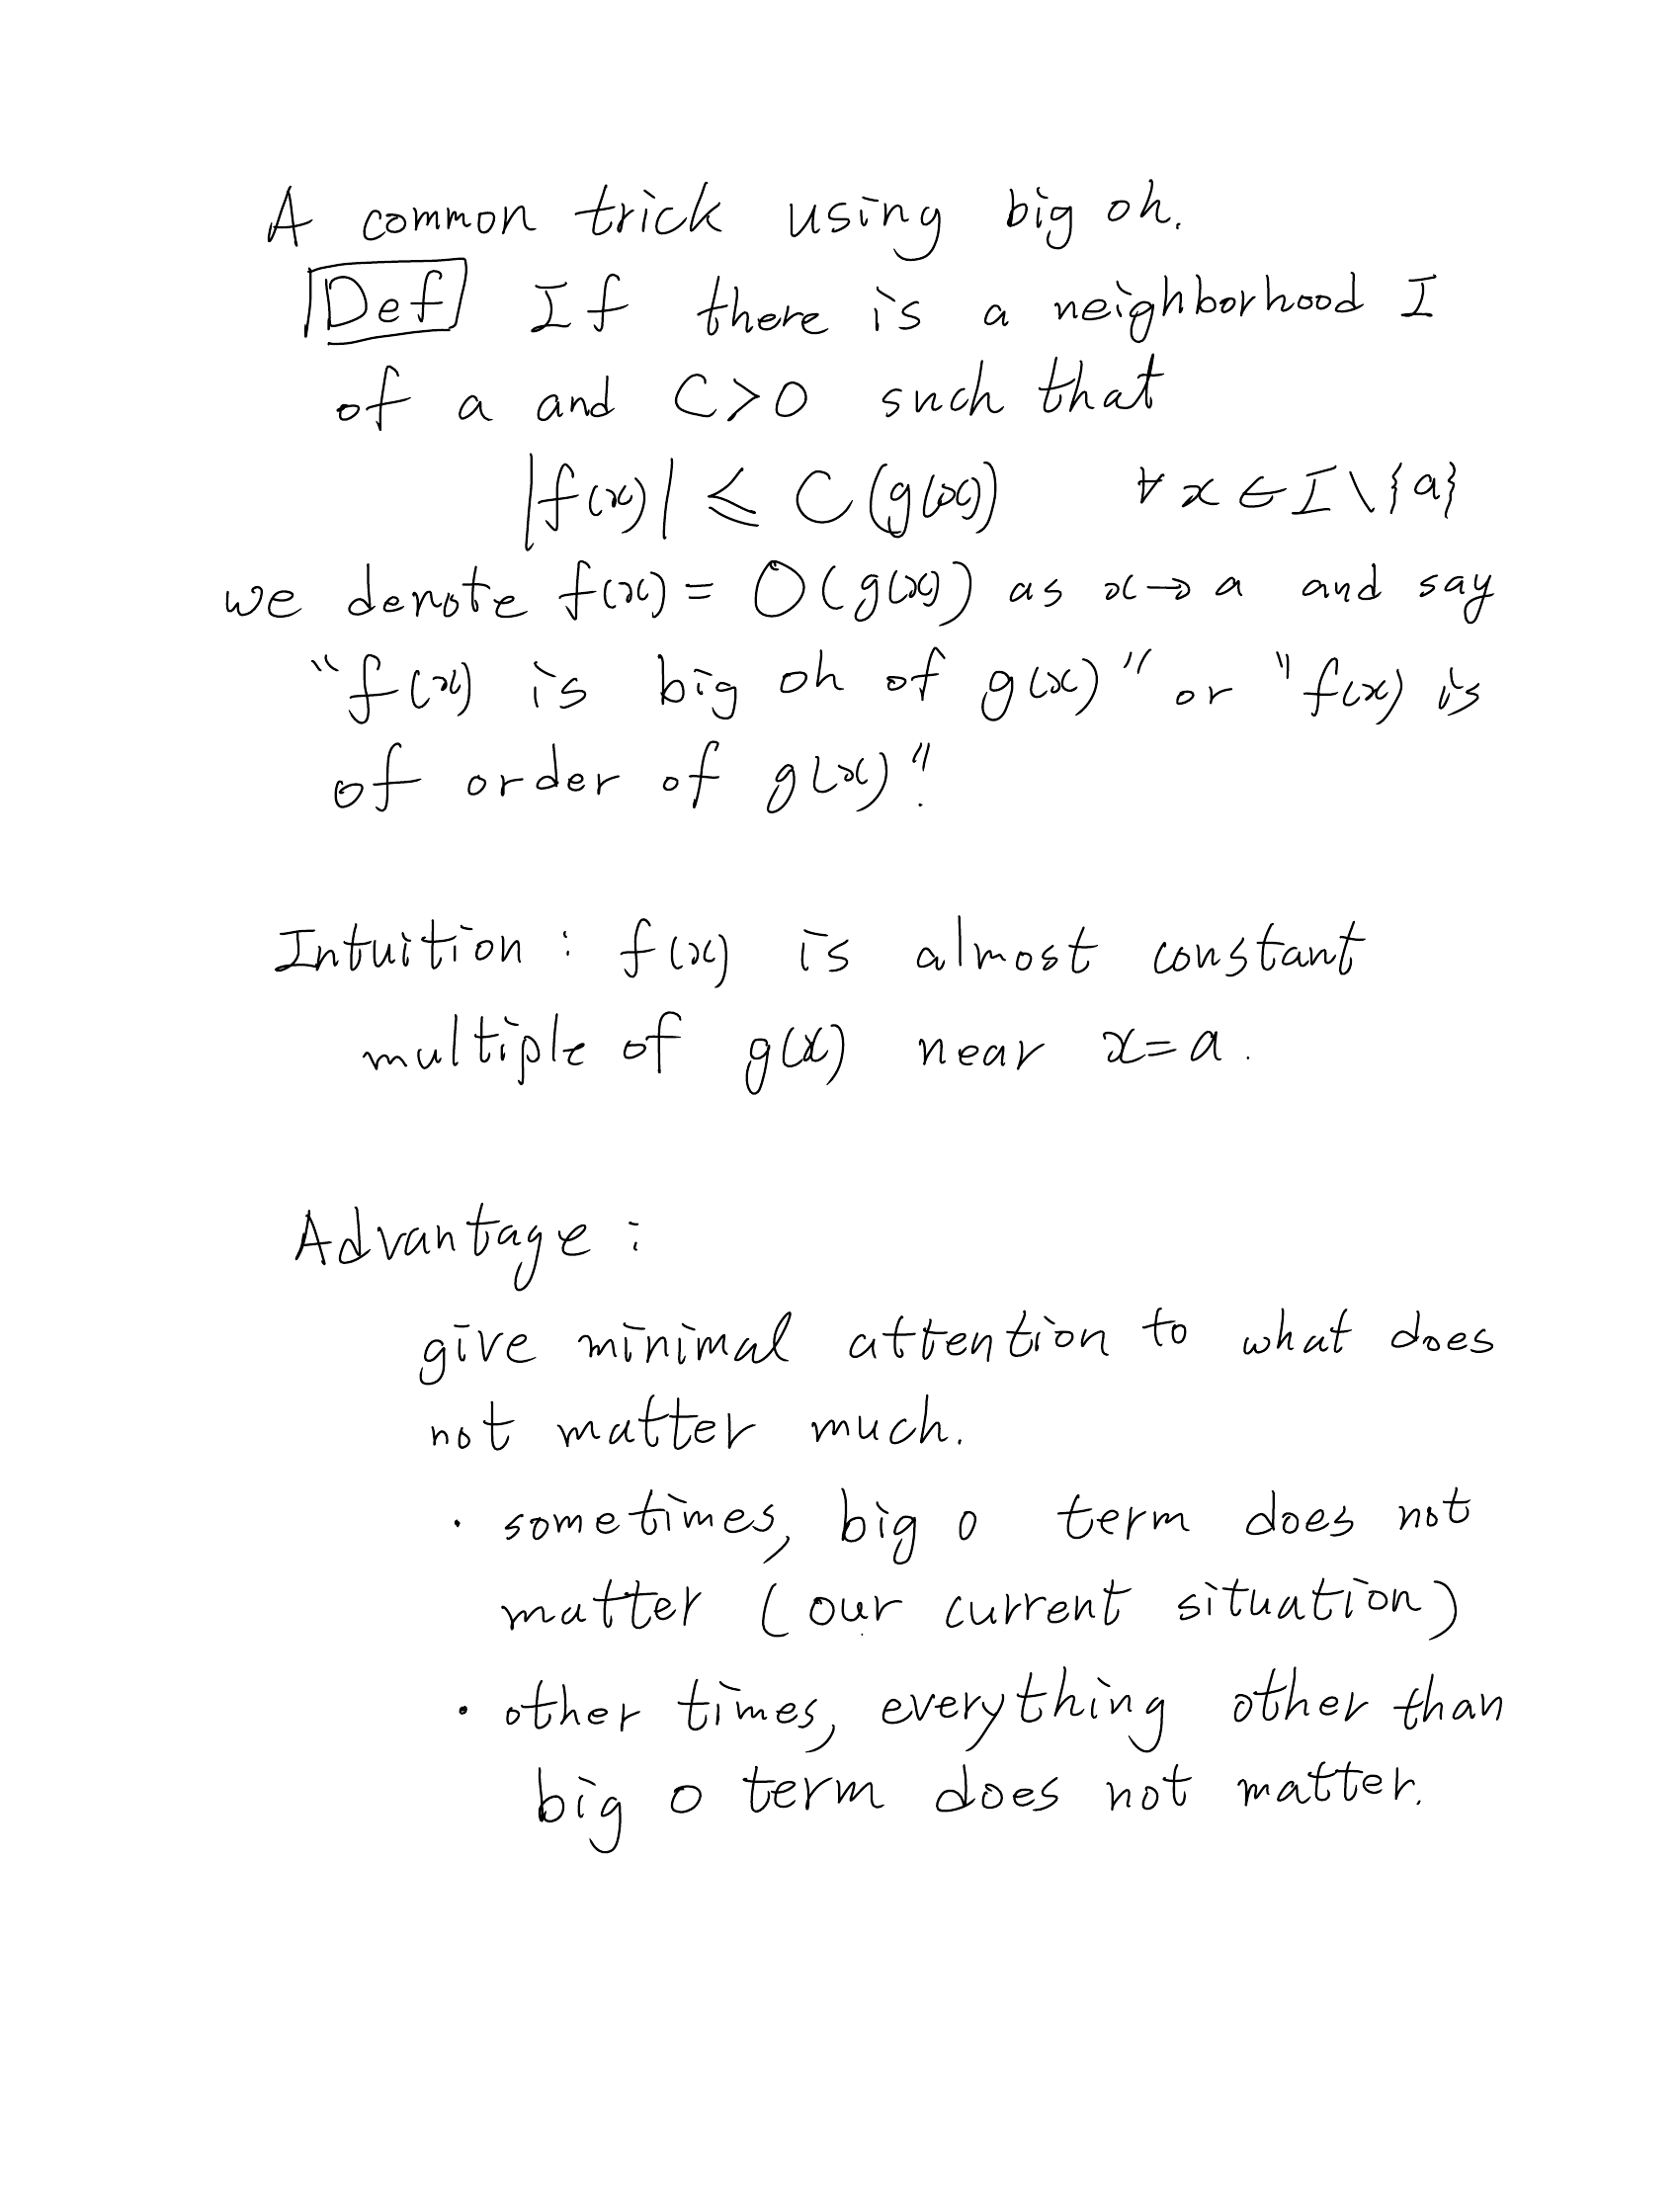 A common trick using big oh.
Def If there is a neighborhood I
of a and C>0 such that
|f(x)| ⩽ C(g(x)) ∀x∈I\{a}
we denote f(x) = O(g(x)) as x→a and say
"f(x) is big oh of g(x)" or "f(x) is
of order of g(x)".
Intuition : f(x) is almost constant
multiple of g(x) near x=a.
Advantage :
give minimal attention to what does
not matter much.
· sometimes, big o term does not
matter (our current situation)
· other times, everything other than
big o term does not matter.